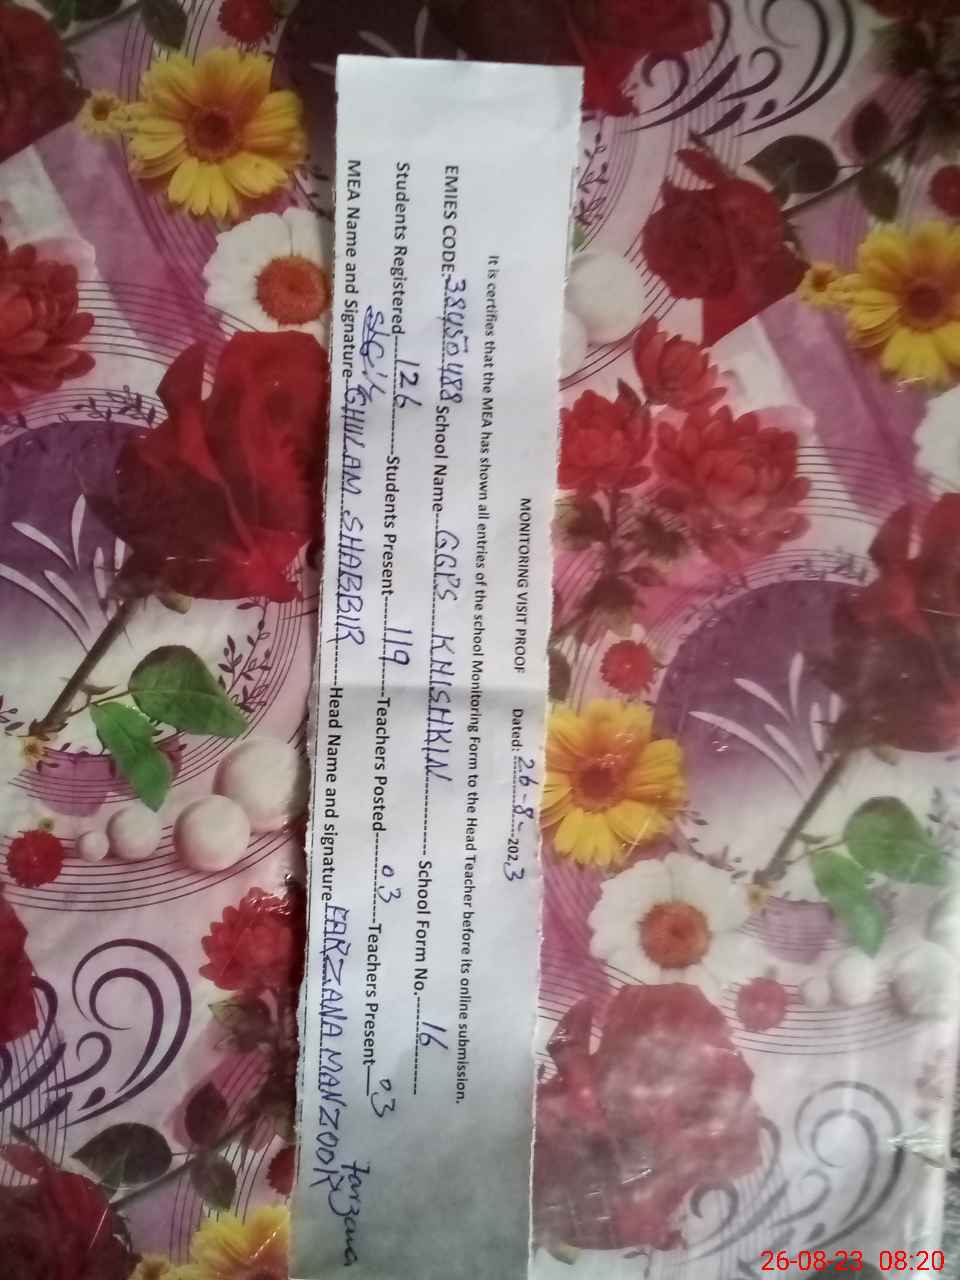 MONITORING VISIT PROOF Dated: 26-8-2023
It is certifies that the MEA has shown all entries of the school Monitoring Form to the Head Teacher before its online submission.
EMIES CODE 38450488 School Name GGPS KHISHKIN School Form No. 16
Students Registered 126 Students Present 119 Teachers Posted 03 Teachers Present 03
MEA Name and Signature GHULAM SHABBIR Head Name and signature FARZANA MANZOOR Farzana
26-08-23 08:20